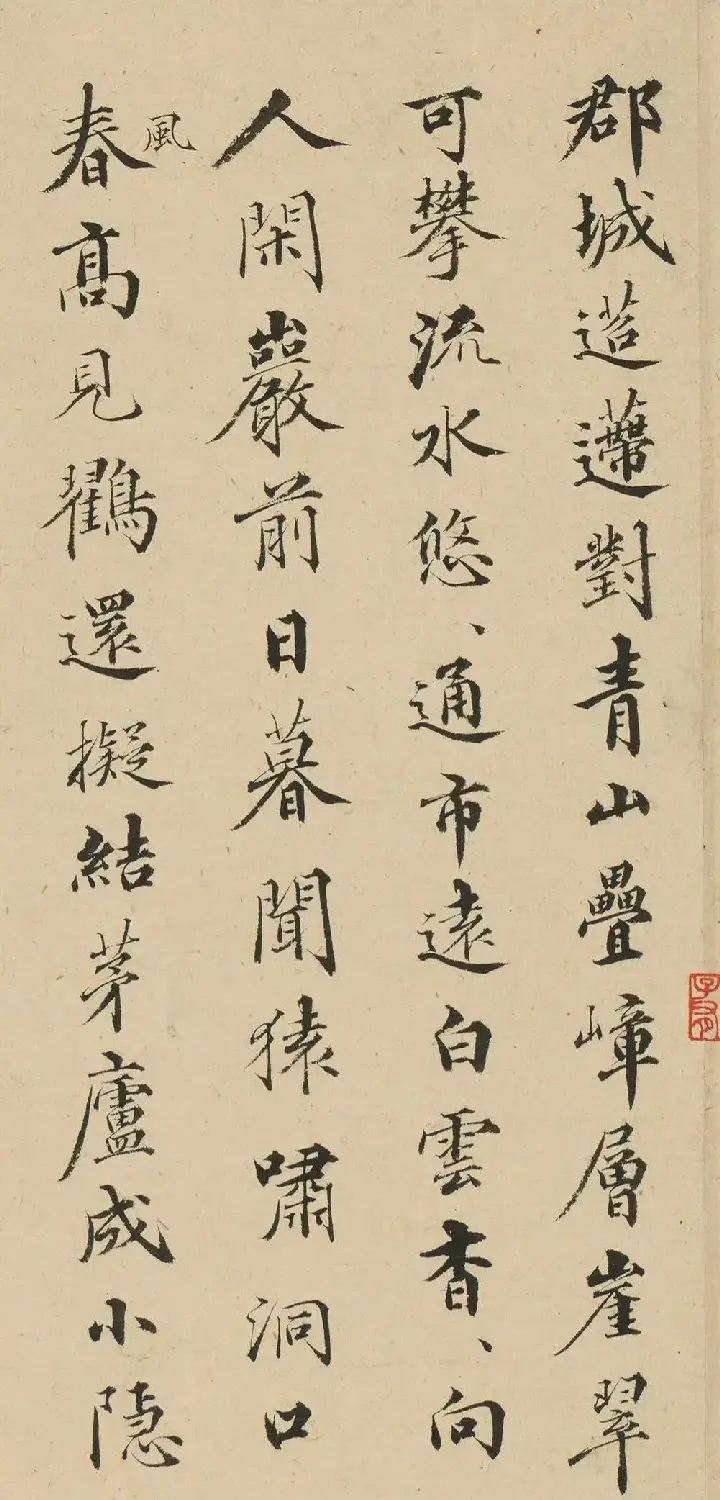 郡城迢遰對青山疊嶂層崖翠
可攀流水悠、通市遠白雲杳、向
人閑巖前日暮聞猿嘯洞口
春風高見鸖還擬結茅廬成小隱